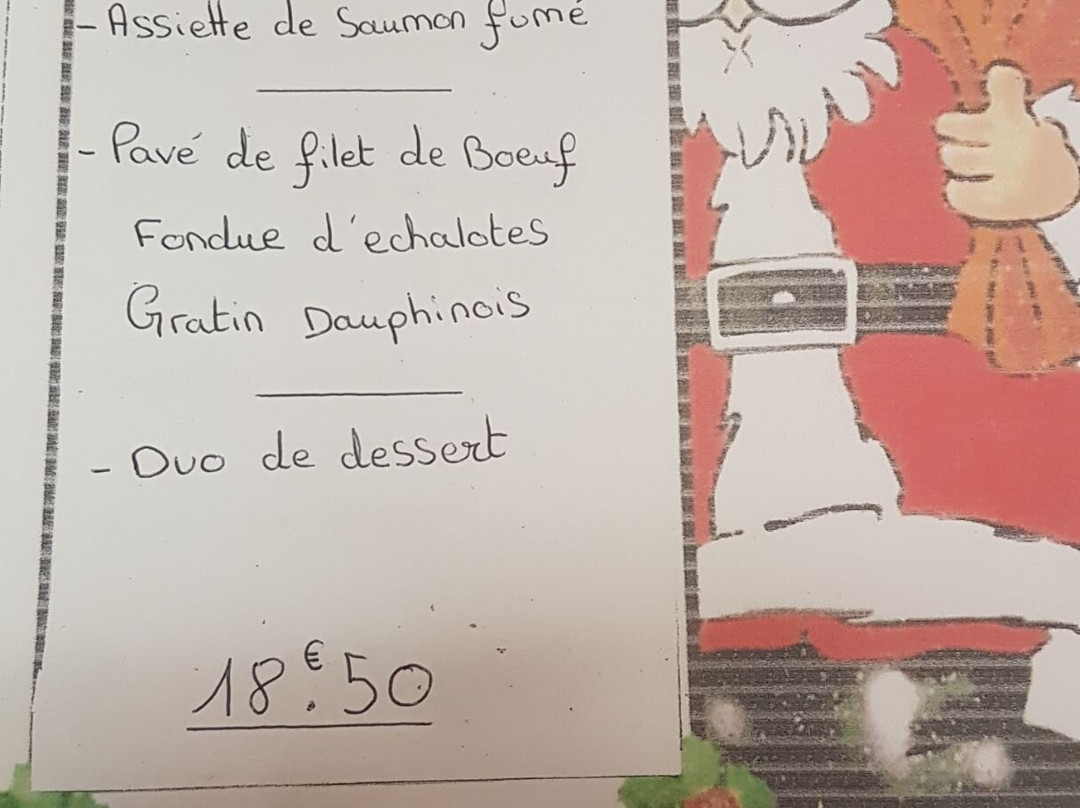 - Assiette de Saumon fumé
- Pavé de filet de Boeuf
Fondue d'echalotes
Gratin Dauphinois
- Duo de dessert
18€.50